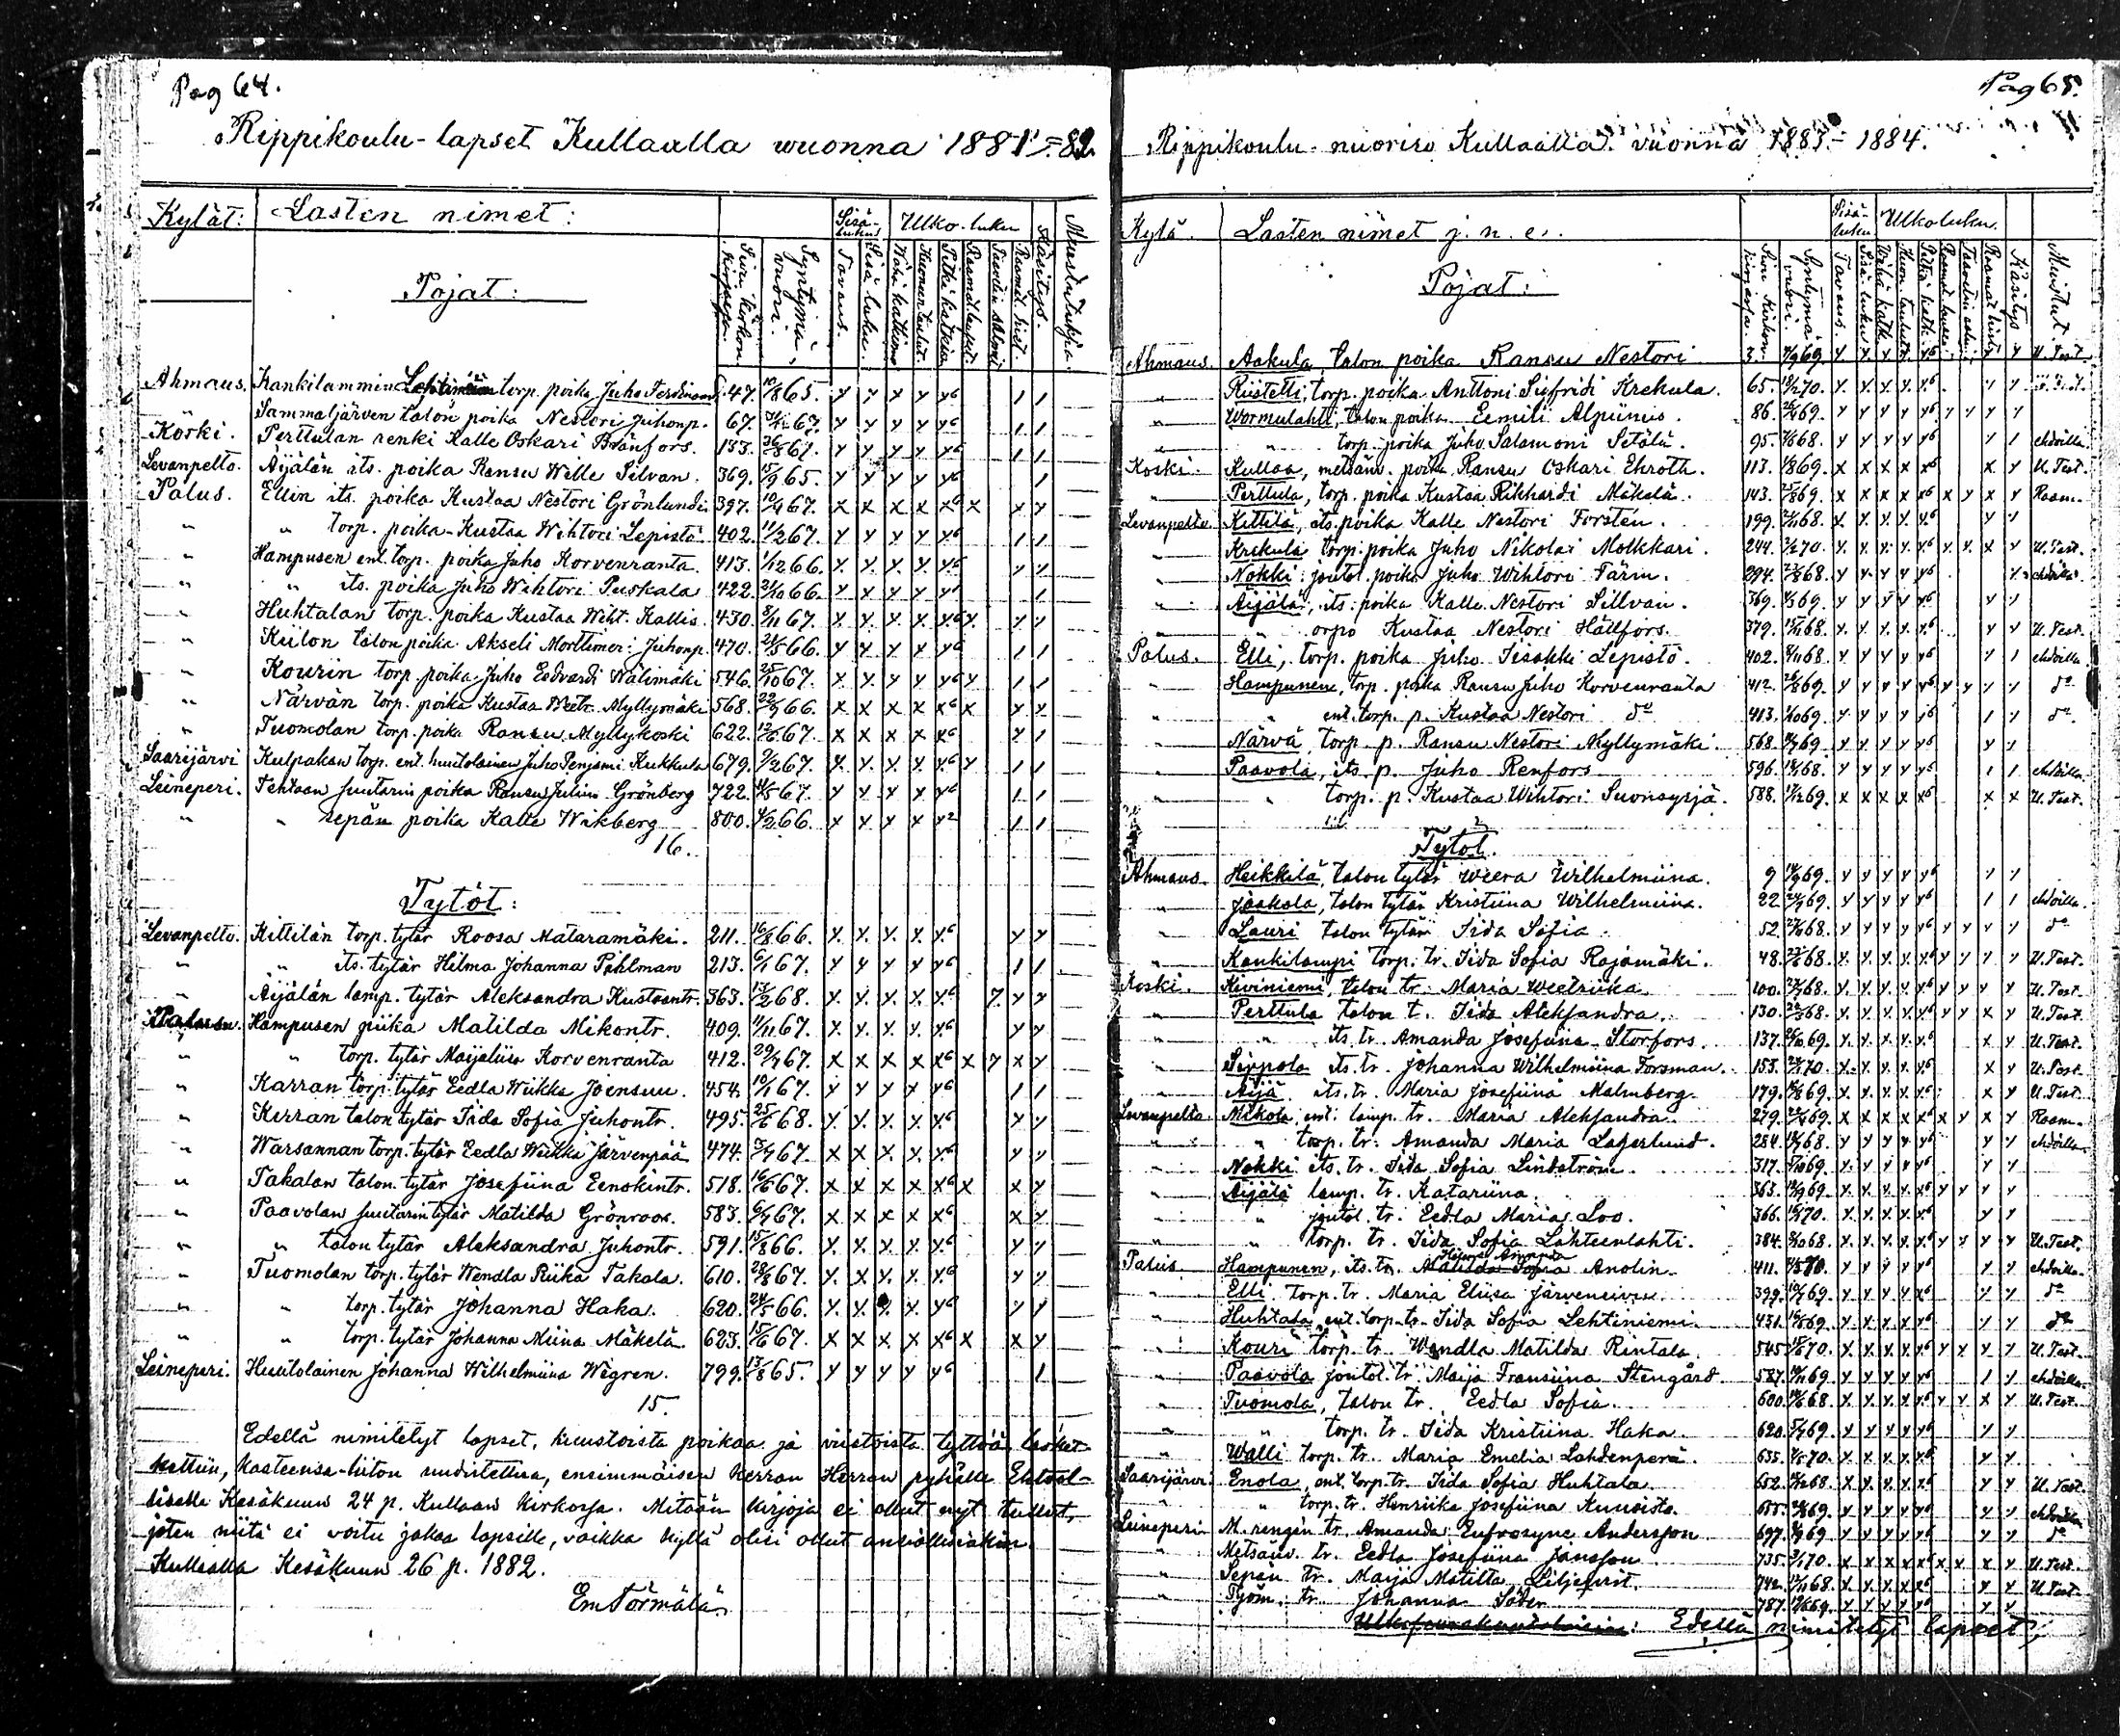 Pag 64.
Rippikoulu-lapset Kullaalla wuonna 1881=82.
Kylät: Lasten nimet: Sisä-luku Ulko-luku Käsitys. Muistutuksia.
Pojat: Siwu kirkon kirjassa. Syntymä wuosi. Tavaus. Sisä luku. Wähä katkismo Huoneentaulut. Pitkä katkism Raamat. hist.
Ahmaus. Kankilammin torp. poika Juho Ferdinand 47. 10/8 65. x x x x x6 1 1
" Sammaljärven talon poika Nestori Juhonp. 67. 67. x x x x x6 1 1
Koski. Perttulan renki Kalle Oskari Bränfors. 133. 26/8 67. x x x x x6 1 1
Levanpelto. Äijälän its. poika Ransu Wille Silvan. 369. 15/9 65. x x x x x6 1
Palus. Ellin its. poika Kustaa Nestori Grönlund 397. 10/4 67. x x x x x6 x x x
" " torp. poika Kustaa Wihtori Lepistö 402. 11/2 67. x x x x x6 1 1
" Hampusen ent. torp. poika Juho Korvenranta. 413. 1/12 66. x x x x x6 x x
" " its. poika Juho Wihtori Puskala 422. 21/10 66. x x x x x6 1 1
" Huhtalan torp. poika Kustaa Wiht. Kallis. 430. 8/11 67. x x x x x6 x x x
" Kiilon talon poika Akseli Morttimer Juhonp. 470. 21/5 66. x x x x x6 1 1
" Kourin torp. poika Juho Eedvardi Wälimäki 546. 25/10 67. x x x x x6 x 1 1
" Närvän torp. poika Kustaa Myllymäki 568. 22/7 66. x x x x x6 x x x
" Tuomolan torp. poika Ransu Myllykoski 622. 12/6 67. x x x x x6 x 1
Saarijärvi Kulpakan torp. ent. huutolainen Juho Penjami Kukkula 679. 9/2 67. x x x x x6 x 1 1
Leineperi. Tehtaan suutarin poika Ransu Julius Grönberg 722. 14/5 67. x x x x x6 1 1
" " sepän poika Kalle Wikberg 800. 4/2 66. x x x x x2 1 1
16.
Tytöt:
Levanpelto. Kittilän torp. tytär Roosa Mataramäki. 211. 16/8 66. x x x x x6 x x
" " its. tytär Hilma Johanna Pohlman 213. 6/1 67. x x x x x6 1 1
" Äijälän lamp. tytär Aleksandra Kustaantr. 363. 13/2 68. x x x x x6 7. x x
Hampusen piika Matilda Mikontr. 409. 11/11 67. x x x x x6 x x
" " torp. tytär Maijaliisa Korvenranta 412. 29/7 67. x x x x x6 x 7 x x
" Karran torp. tytär Eedla Wiikka Joensuu. 454. 10/1 67. x x x x x6 1 1
" Kerran talon tytär Iida Sofia Juhontr. 495. 25/6 68. x x x x x6 x x
" Warsannan torp. tytär Eedla Wiikka Järvenpää 474. 5/7 67. x x x x x6 x x
" Takalan talon tytär Josefiina Eenokintr. 518. 16/6 67. x x x x x6 x x x
" Paavolan suutarin tytär Matilda Grönroos. 583. 6/7 67. x x x x x6 x x
" " talon tytär Aleksandra Juhontr. 591. 15/8 66. x x x x x6 x x
" Tuomolan torp. tytär Wendla Riika Takala. 610. 28/8 67. x x x x x6 x x
" " torp. tytär Johanna Haka. 620. 24/5 66. x x x x x6 x x
" " torp. tytär Johanna Miina Mäkelä 623. 15/6 67. x x x x x6 x x x
Leineperi. Huutolainen Johanna Wilhelmiina Wegren. 799. 13/8 65. x x x x x6 1
15.
Edellä nimitetyt lapset, kuustoista poikaa ja viistoista tyttöä lasket-
kettiin, kasteensa-liiton uudistettua, ensimmäisen kerran Herran pyhälle Ehtool-
liselle Kesäkuun 24 p. Kullaan kirkossa. Mitään kirjoja ei ollut nyt tullut,
joten niitä ei voitu jakaa lapsille, vaikka kyllä olisi ollut ansiollisiakin.
Kullaalla Kesäkuun 26 p. 1882.
Em Törmälä
Pag 65.
Rippikoulu-nuoriso Kullaalla vuonna 1883-1884.
Kylä. Lasten nimet j. n. e. Sisä-luku Ulkoluku. Käsitys Muistut.
Pojat: Siwu kirkon kirjassa. Syntymä vuosi. Tavaus. Sisä luku
Ahmaus. Aakula, talon poika Ransu Nestori 3. 7/9 69. x x x x x6 x x U. Test.
" Riistetti, torp. poika Anttoni Siifridi Krekula. 65. 18/2 70. x x x x x6 x x
" Wormulahti, talon poika Eemili Alpiinus. 86. 69. x x x x x6 x x x x
" " torp. poika Juho Salamoni Setälä. 95. 68. x x x x x6 x 1 ehdoilla
Koski. Kullaa, metsänv. poika Ransu Oskari Ehroth. 113. 1/8 69. x x x x x6 x x U. Test.
" Perttula, torp. poika Kustaa Rikhardi Mäkelä. 143. 25/8 69. x x x x x6 x x x x Raam.
Levanpelto Kittilä, its. poika Kalle Nestori Forstén. 199. 68. x x x x x6 x 1
" Krekula torp. poika Juho Nikolai Molkkari. 244. 70. x x x x x6 x x x x U. Test.
" Nokki joutol. poika Juho Wihtori Färm. 294. 68. x x x x x6 x ehdoilla
" Äijälä, its. poika Kalle Nestori Sillvan. 369. 69. x x x x x6 x 1
" " orpo Kustaa Nestori Hällfors. 379. 15/11 68. x x x x x6 x x U. Test.
Palus. Elli, torp. poika Juho Iisakki Lepistö. 402. 68. x x x x x6 x 1 ehdoilla
" Hampunen, torp. poika Ransu Juho Korvenranta 412. 69. x x x x x6 x x x x do
" " ent. torp. p. Kustaa Nestori do 413. 69. x x x x x6 1 x do
" Närvä torp. p. Ransu Nestori Myllymäki. 568. 69. x x x x x6 x x
" Paavola, its. p. Juho Renfors 596. 68. x x x x x6 1 1 ehdoilla
" " torp. p. Kustaa Wihtori Suonsyrjä. 588. 11/12 69. x x x x x6 x x U. Test.
Tytöt.
Ahmaus. Heikkilä, talon tytär Weera Wilhelmiina. 9 69. x x x x x6 x x
" Jaakola, talon tytär Kristiina Wilhelmiina. 22 69. x x x x x6 1 1 ehdoilla
" Lauri talon tytär Iida Sofia 52 68. x x x x x6 x x x x do
" Kankilampi torp. tr. Iida Sofia Rajamäki. 48. 68. x x x x x6 x x x x U. Test.
Koski. Kiviniemi, talon tr. Maria Weetriika 100. 68. x x x x x6 x x x x U. Test.
" Perttula talon t. Iida Aleksandra. 130. 68. x x x x x6 x x x x U. Test.
" " its. tr. Amanda Josefiina Storfors. 137. 69. x x x x x6 x x U. Test.
" Sippola its. tr. Johanna Wilhelmiina Forsman. 153. 70. x x x x x6 x x U. Test.
" Äijä its. tr. Maria Josefiina Malmberg. 179. 69. x x x x x6 x x U. Test.
Levanpelto Mikola, ent. lamp. tr. Maria Aleksandra. 279. 69. x x x x x6 x x x x Raam.
" " torp. tr. Amanda Maria Lagerlund. 284. 68. x x x x x6 x x ehdoilla
" Nokki its. tr. Iida Sofia Lindström. 317. 69. x x x x x6 x x
" Äijälä lamp. tr. Katariina. 363. 69. x x x x x6 x x x x
" " joutol. tr. Eedla Maria Loo. 366. 70. x x x x x6 x x
" " torp. tr. Iida Sofia Lahteenlahti. 384. 68. x x x x x6 x x x x U. Test.
Palus Hampunen, its. tr. Matilda Sofia Anolin. 411. 70. x x x x x6 x x ehdoilla
" Elli torp. tr. Maria Eliisa Järvensivu. 399. 69. x x x x x6 x x do
" Huhtala ent. torp. tr. Iida Sofia Lehtiniemi. 431. 69. x x x x x6 x x do
" Kouri torp. tr. Wendla Matilda Rintala. 545. 70. x x x x x6 x x x x U. Test.
" Paavola joutol. tr. Maija Fransiina Stengård 587. 69. x x x x x6 1 x ehdoilla
" Tuomola, talon tr. Eedla Sofia. 600. 68. x x x x x6 x x x x U. Test.
" " torp. tr. Iida Kristiina Haka. 620. 69. x x x x x6 x x
" Walli torp. tr. Maria Emelia Lahdenperä. 635. 70. x x x x x6 x x
Saarijärvi Enola, ent. torp. tr. Iida Sofia Huhtala. 652. 68. x x x x x6 x x U. Test.
" " torp. tr. Henriika Josefiina Kunoisto. 655. 69. x x x x x6 x x ehdoilla
Leineperi M. rengin tr. Amanda Eufrosyne Andersson 697. 69 x x x x x6 x x do
" Metsänv. tr. Eedla Josefiina Jansson 735. 70. x x x x x6 x x x x U. Test.
" Sepän tr. Maija Matilta Liljeqvist. 742. 68. x x x x x6 x x U. Test.
" Työm. tr. Johanna Söder 787. 69. x x x x x6 x x
Edellä nimitetyt lapset,